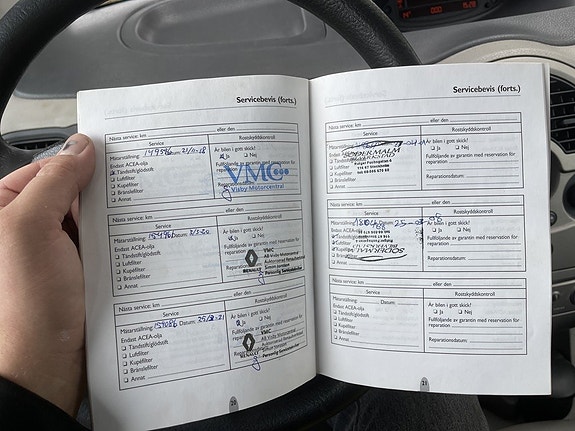 Servicebevis (forts.)
Nästa service: km eller den
Service Rostskyddskontroll
Mätarställning: Datum: 21/11-18
Endast ACEA-olja
Tändstift/glödstift
Luftfilter
Kupéfilter
Bränslefilter
Annat
Är bilen i gott skick?
Ja Nej
Fullföljande av garantin med reservation för
reparation
Reparationsdatum:
VMC
Visby Motorcentral
Nästa service: km eller den
Service Rostskyddskontroll
Mätarställning: Datum:
Endast ACEA-olja
Tändstift/glödstift
Luftfilter
Kupéfilter
Bränslefilter
Annat
Är bilen i gott skick?
Ja Nej
Fullföljande av garantin med reservation för
reparation
Reparationsdatum:
RENAULT
VMC
AB Visby Motorcentral
Auktoriserad Renaultverkstad
Personlig Servicetekniker
Nästa service: km eller den
Service Rostskyddskontroll
Mätarställning: Datum:
Endast ACEA-olja
Tändstift/glödstift
Luftfilter
Kupéfilter
Bränslefilter
Annat
Är bilen i gott skick?
Ja Nej
Fullföljande av garantin med reservation för
reparation
Reparationsdatum:
RENAULT
VMC
AB Visby Motorcentral
Auktoriserad Renaultverkstad
Personlig Servicetekniker
20
Servicebevis (forts.)
Nästa service: km eller den
Service Rostskyddskontroll
Endast ACEA-olja
Tändstift/glödstift
Luftfilter
Kupéfilter
Bränslefilter
Annat
SÖDERMALM
Är bilen i gott skick?
Ja Nej
Fullföljande av garantin med reservation för
reparation
Reparationsdatum:
Nästa service: km eller den
Service Rostskyddskontroll
Mätarställning: Datum:
Endast ACEA-olja
Tändstift/glödstift
Luftfilter
Kupéfilter
Bränslefilter
Annat
Är bilen i gott skick?
Ja Nej
Fullföljande av garantin med reservation för
reparation
Reparationsdatum:
Nästa service: km eller den
Service Rostskyddskontroll
Mätarställning: Datum:
Endast ACEA-olja
Tändstift/glödstift
Luftfilter
Kupéfilter
Bränslefilter
Annat
Är bilen i gott skick?
Ja Nej
Fullföljande av garantin med reservation för
reparation
Reparationsdatum:
21